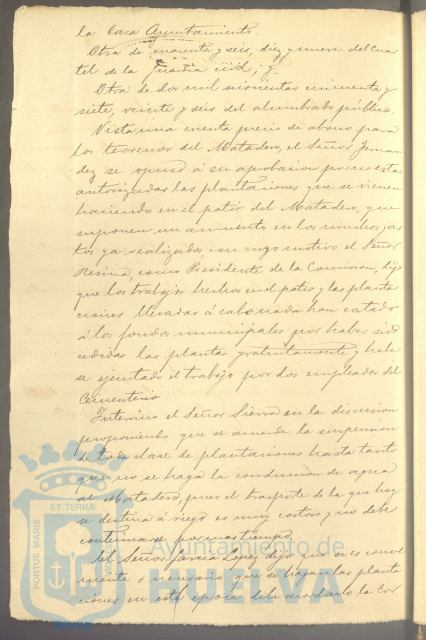 la Casa Ayuntamiento.
Otra de cuarenta y seis, diez y nueve del Cuar
tel de la Guardia civil, y
Otra de dos mil seiscientas cincuenta y
siete, veinte y seis del alumbrado público.
Vista una cuenta precio de abono para
los terrenos del Matadero, el Señor Jernan
dez se opuso á su aprobacion por no estar
autorizadas las plantaciones que se vienen
haciendo en el patio del Matadero, que
suponen un aumento en los muchos gas
tos ya realizados, con cuyo motivo el Señor
Resina, como Presidente de la Comision, dijo
que los trabajos hechos en el patio y las planta
ciones llevadas á cabo nada han costado
á los fondos municipales por haber sido
cedidas las plantas gratuitamente y haber
se ejecutado el trabajo por dos empleados del
Cementerio.
Intervino el Señor Sierra en la discusion
proponiendo que se acuerde la suspension
de toda clase de plantaciones hasta tanto
que no se haga la conduccion de agua
al Matadero, pues el trasporte de la que hoy
se destina á riego es muy costoso y no debe
continuarse por mas tiempo.
El Señor Garcia Lopez dijo que si es conve
niente ó necesario que se hagan las planta
ciones en esta época debe acordarlo la Cor
PORTUS MARIS ET TERRÆ
Ayuntamiento de
HUELVA